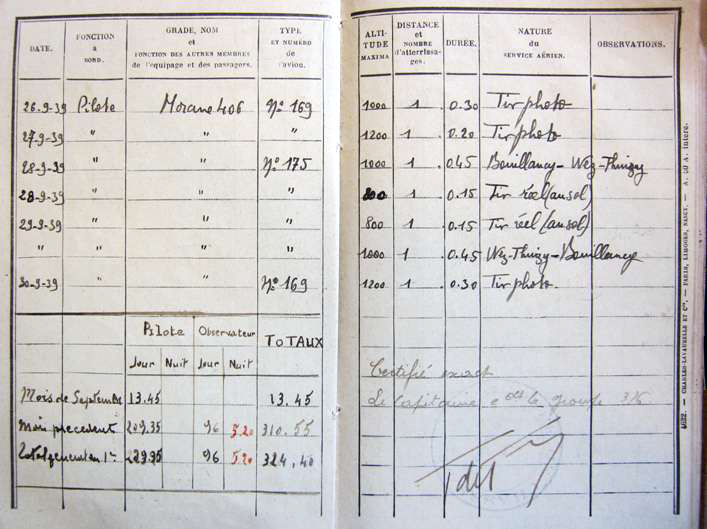 DATE. FONCTION à BORD. GRADE, NOM et FONCTION DES AUTRES MEMBRES de l'équipage et des passagers. TYPE ET NUMÉRO de l'avion.
26.9.39 Pilote Morane 406 N° 169
27-9-39 " " "
28-9-39 " " N° 175
28-9-39 " " "
29-9-39 " " "
" " " "
30-9-39 " N° 169
Pilote Observateur TOTAUX
Jour Nuit Jour Nuit
Mois de Septembre 13.45 13.45
Mois précédent 209.35 96 5.20 310.55
96 5.20 324.40
ALTITUDE MAXIMA DISTANCE et NOMBRE d'atterrissages. DURÉE. NATURE du SERVICE AÉRIEN. OBSERVATIONS.
1000 1 0.30 Tir photo
1200 1 0.20 Tir photo
1000 1 0.45 Bouillancy - Wez-Thuizy
800 1 0.15 Tir réel (au sol)
800 1 0.15 Tir réel (au sol)
1000 1 0.45 Wez-Thuizy - Bouillancy
1200 1 0.30 Tir photo.
Certifié exact
Le Capitaine le groupe
4632. — CHARLES-LAVAUZELLE ET Cie. — PARIS, LIMOGES, NANCY. — A. 50 A. Intérc.